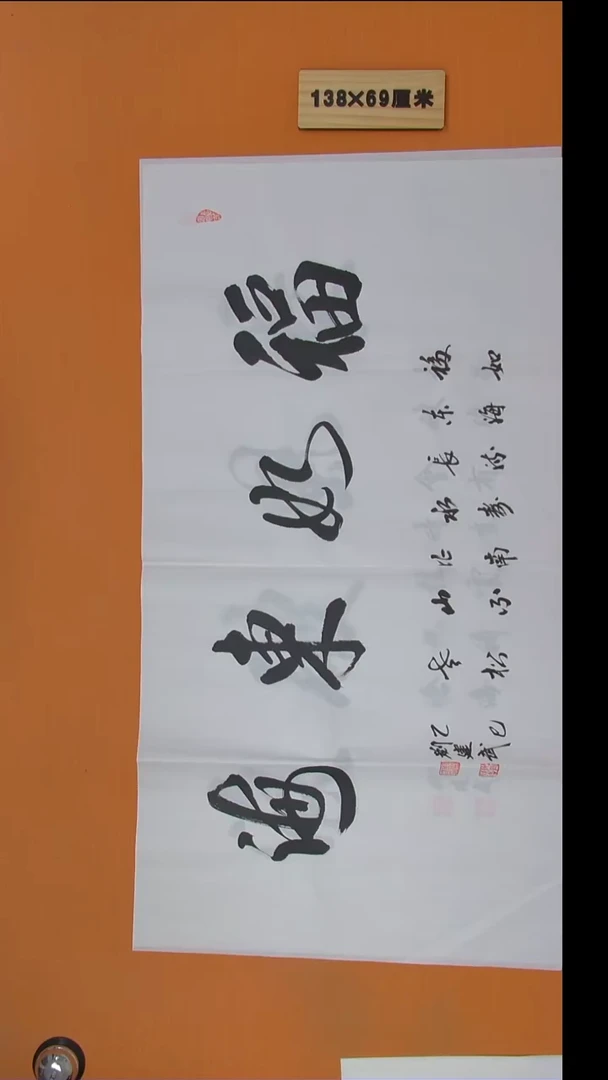 138×69厘米
福如東海
福如
东海
长流
水寿
比南
山不
老松
乙巳
劉建武